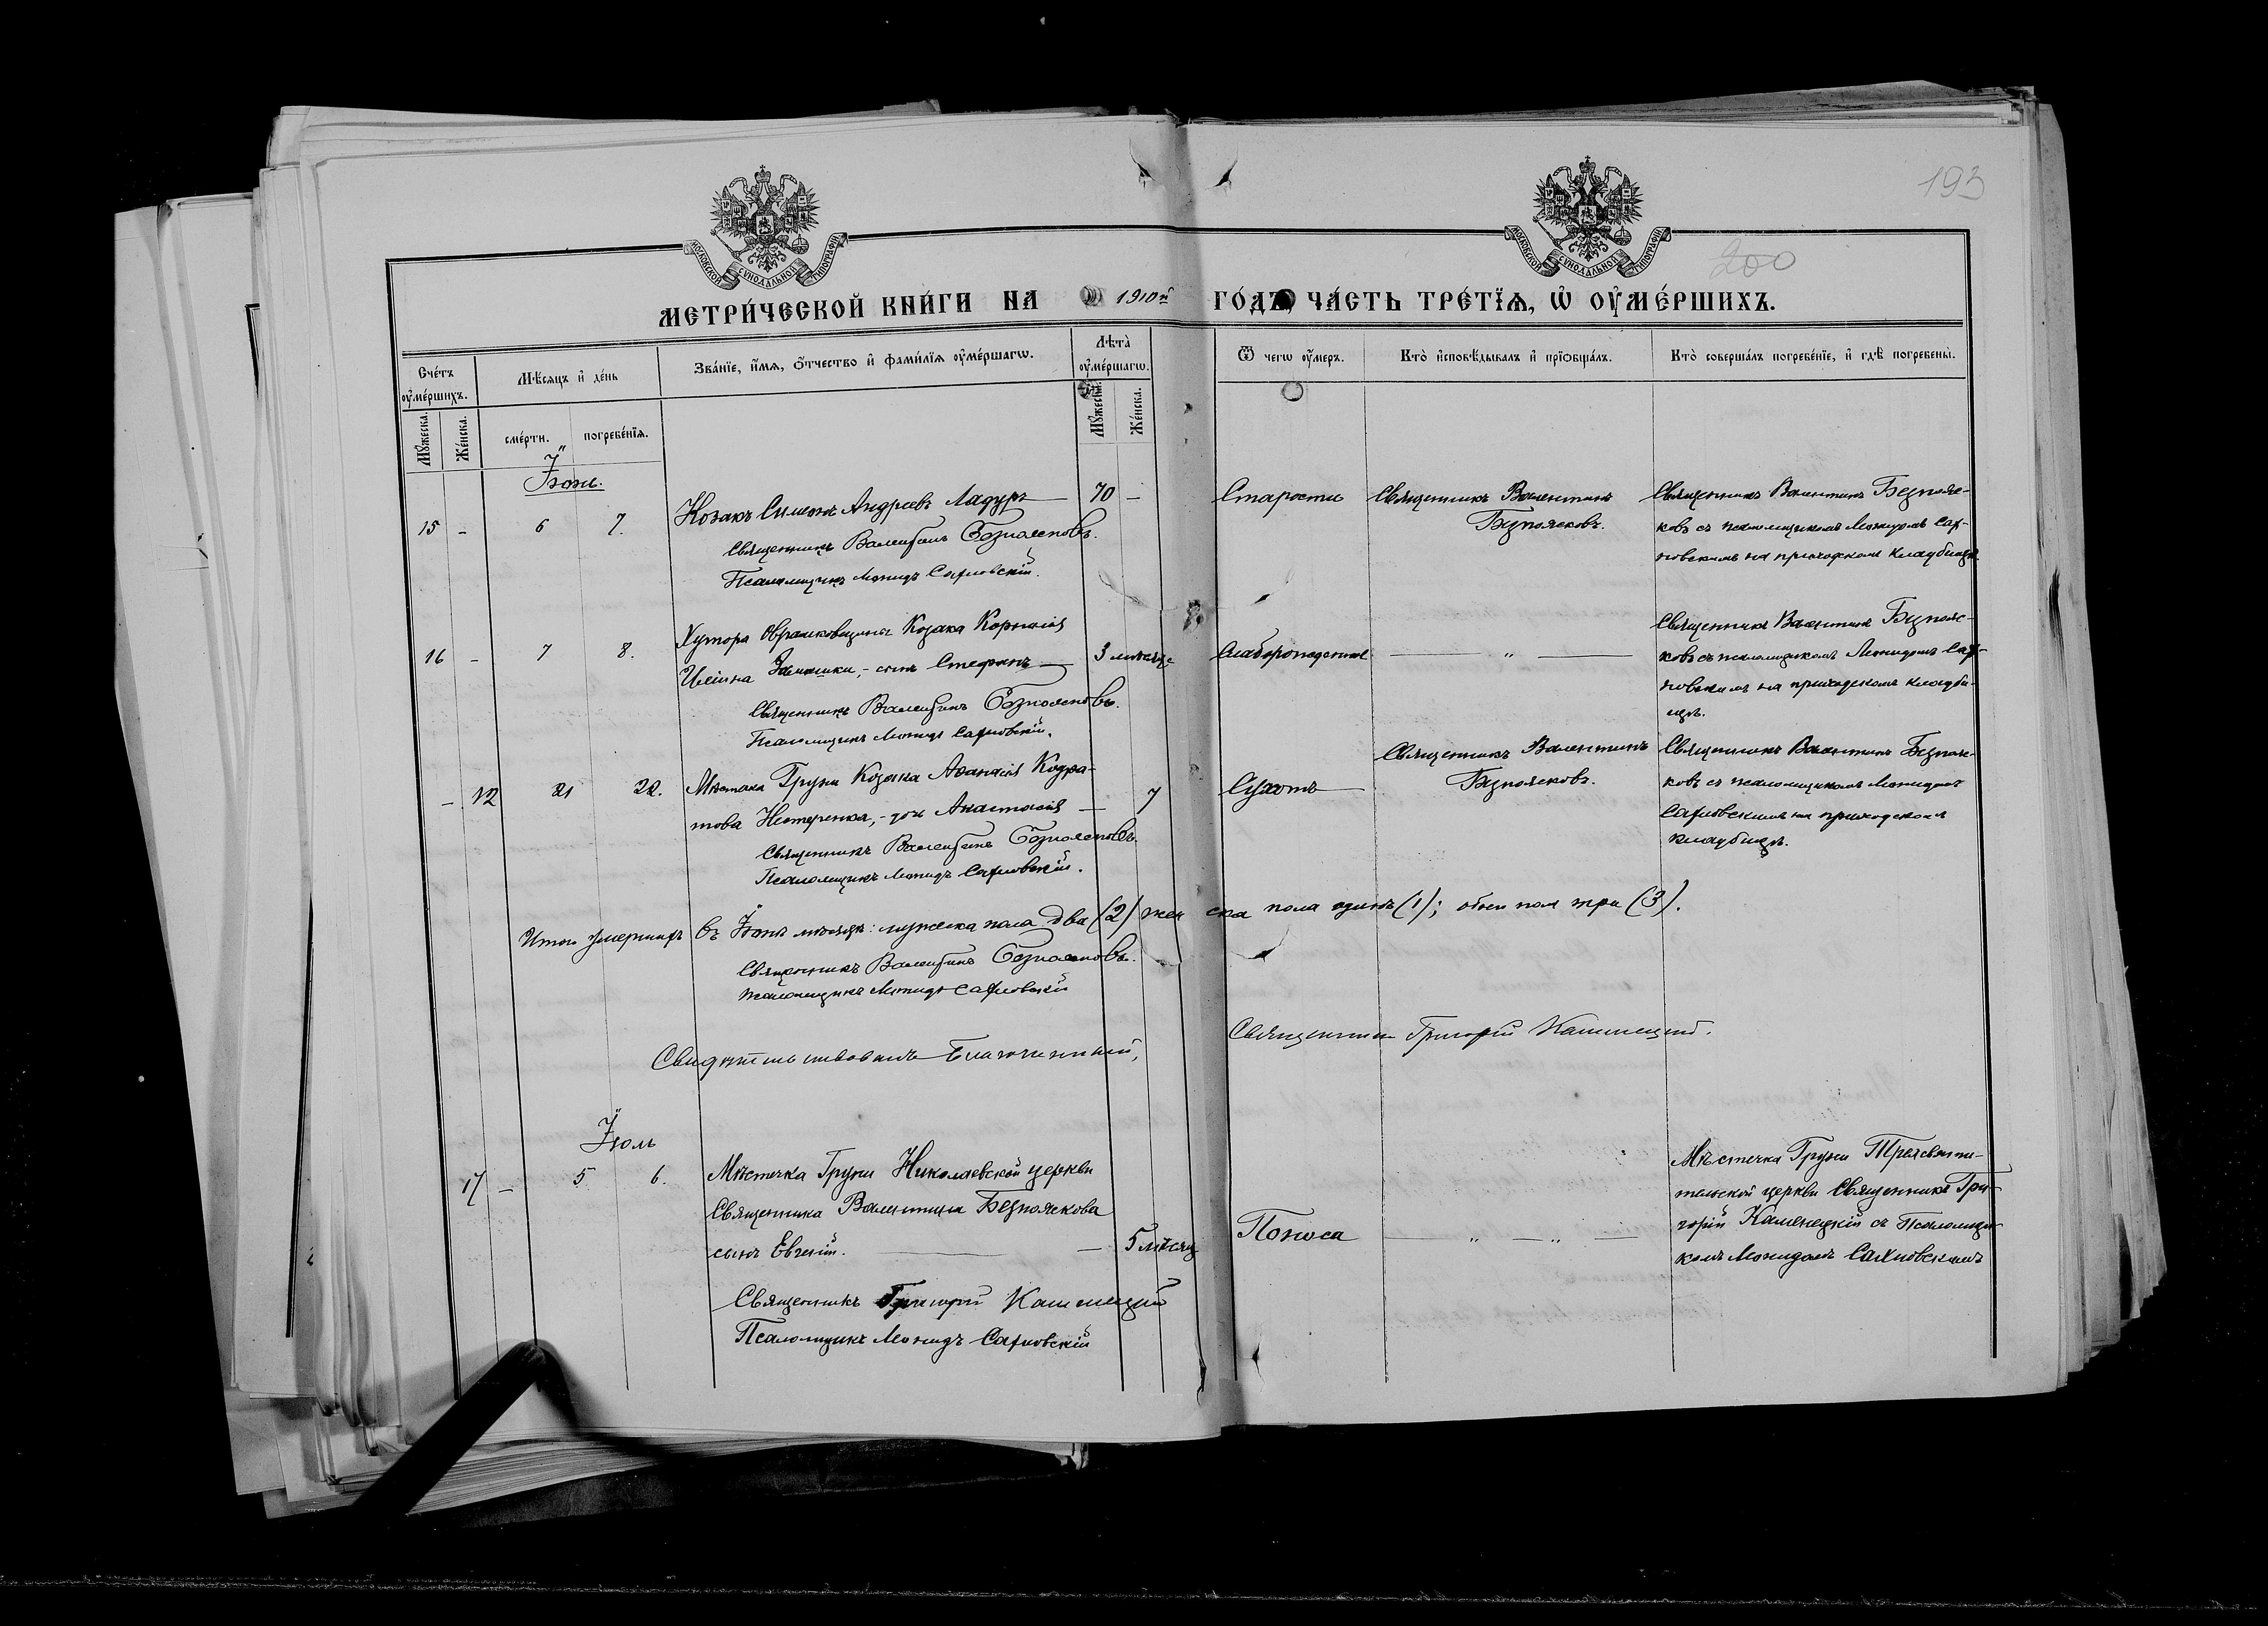 193
200
МОСКОВСКОЙ СѴНОДАЛЬНОЙ ТИПОГРАФІИ
МОСКОВСКОЙ СѴНОДАЛЬНОЙ ТИПОГРАФІИ
МЕТРИ́ЧЕСКОЙ КНИ́ГИ НА 1910й ГО́ДЪ, ЧА́СТЬ ТРЕ́ТЇѦ, Ѡ҆ ОУ҆МЕ́РШИХЪ.
Сче́тъ оу҆ме́ршихъ.
Мꙋ́жеска.
Же́нска.
Мѣ́сяцъ и҆ де́нь
сме́рти.
погребе́нїѧ.
Зва́нїе, и҆́мѧ, ѻ҆́тчество и҆ фами́лїѧ оу҆ме́ршагѡ.
Лѣ̑та̀ оу҆ме́ршагѡ.
Мꙋ́жеска.
Же́нска.
Ѿ чегѡ̀ оу҆́меръ.
Кто̀ и҆сповѣ́дывалъ и҆ прїѡбща́лъ.
Кто̀ соверша́лъ погребе́нїе, и҆ гдѣ̀ погребены̀.
Іюнь.
15 - 6 7. Козакъ Симеонъ Андреевъ Ладуръ 70 -
Священникъ Валентинъ Безпоясковъ.
Псаломщикъ Леонидъ Сахновскій.
Старости
Священникъ Валентинъ
Безпоясковъ.
Священникъ Валентинъ Безпояс-
ковъ съ псаломщикомъ Леонидомъ Сах-
новскимъ на приходскомъ кладбищѣ
16 - 7 8. Хутора Овраменковщины Козака Корнилія
сынъ Стефанъ 3 мѣсяц
Священникъ Валентинъ Безпоясковъ.
Псаломщикъ Леонидъ Сахновскій.
Слаборожденный
- " -
Священникъ Валентинъ Безпояс-
ковъ съ псаломщикомъ Леонидомъ Сах-
новскимъ на приходскомъ кладби-
щѣ.
- 12 21 22. Мѣстечка Груни Козака Аѳанасія Кодра-
това Нестеренка, - дочь Анастасія - 7
Священникъ Валентинъ Безпоясковъ.
Псаломщикъ Леонидъ Сахновскій.
Сухоты
Священникъ Валентинъ
Безпоясковъ.
Священникъ Валентинъ Безпояс-
ковъ съ псаломщикомъ Леонидомъ
Сахновскимъ на приходскомъ
кладбищѣ.
Итого умершихъ въ Іюнѣ мѣсяцѣ: мужеска пола два (2) женска пола одинъ (1); обоего пола три (3).
Священникъ Валентинъ Безпоясковъ.
Псаломщикъ Леонидъ Сахновскій
Свидѣтельствовалъ Благочинный, Священникъ Григорій Каменецкій.
Іюль
17 - 5 6. Мѣстечка Груни Николаевской церкви
Священника Валентина Безпояскова
сынъ Евгеній. - 5 мѣсяц
Священникъ Григорій Каменецкій
Псаломщикъ Леонидъ Сахновскій
Поноса
- " - " -
Мѣстечка Груни Трехсвяти-
тельской церкви Священникъ Гри-
горій Каменецкій съ Псаломщи-
комъ Леонидомъ Сахновскимъ